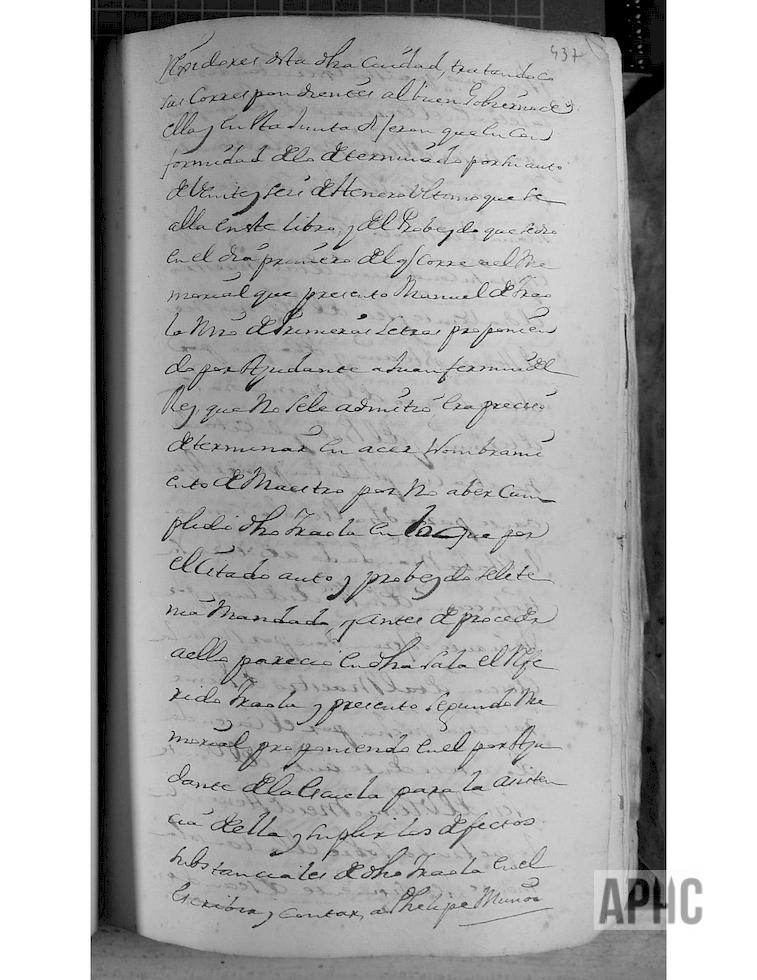 437
Rexidores desta dha Ciudad, tratando co
sas Correspondientes al buen Gobierno de
ella, y en esta Junta dijeron que en con
formidad de lo determinado por su auto
de Veinte y seis de Henero Ultimo que se
alla en este libro, y del Probeydo que se dio
en el dia primero del q corre a el Me
morial que presento Manuel de Frao
la Mro de Primeras Letras proponien
do por Ayudante a Juan fermin del
Rey, que No se le admitio era preciso
determinar en acer Nombrami
ento de Maestro por No aber Cum
plido dho Fraola en lo que por
el Citado auto y probeydo se le te
nia Mandado, y antes de proceder
a ello parecio en dha Sala el Refe
rido Fraola y presento Segundo Me
morial proponiendo en el por Ayu
dante de la Escuela para la asisten
cia de ella y suplir los defectos
substanciales de dho Fraola en el
Escribir y contar, a Phelipe Munoz
APHC